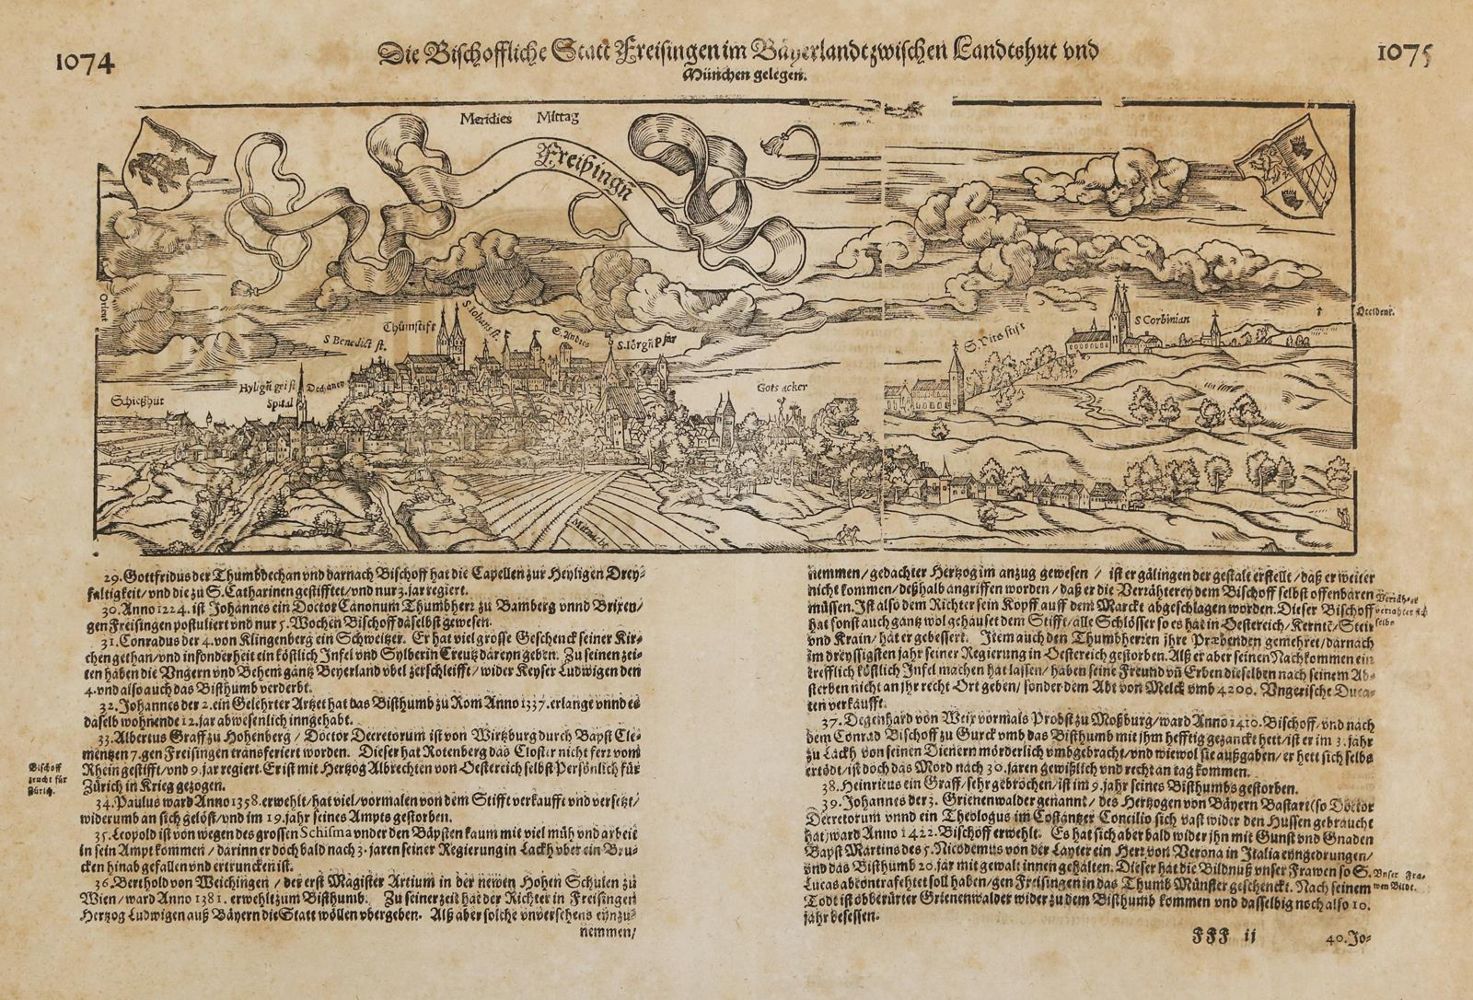 1074
Die Bischoffliche Statt Freisingen im Bäyerlandt zwischen Landtshut vnd
München gelegen.
1075
Meridies Mittag
Freisingn
Orient
Occident.
Thumstift
S Johans st.
S Benedict st.
S. Andres
S. Jörgn Pfar
S. Vito stift
S Corbinian
Hyligñ geist
Spital
Dechanei
Schießhut
Gots acker
29. Gottfridus der Thumbdechan vnd darnach Bischoff hat die Capellen zur Heyligen Drey-
faltigkeit/ vnd die zu S. Catharinen gestifftet/ vnd nur 3. jar regiert.
30. Anno 1224. ist Johannes ein Doctor Canonum Thumbherz zu Bamberg vnnd Brixen/
gen Freisingen postuliert vnd nur 5. Wochen Bischoff daselbst gewesen.
31. Conradus der 4. von Klingenberg ein Schweitzer. Er hat viel grosse Geschenck seiner Kir-
chen gethan/ vnd insonderheit ein köstlich Infel vnd Sylberin Creutz dareyn geben. Zu seinen zei-
ten haben die Vngern vnd Behem gantz Beyerland vbel zerschleifft/ wider Keyser Ludwigen den
4. vnd also auch das Bisthumb verderbt.
32. Johannes der 2. ein Gelehrter Artzet hat das Bisthumb zu Rom Anno 1337. erlangt vnnd es
daselb wohnende 12. jar abwesenlich inngehabt.
33. Albertus Graff zu Hohenberg/ Doctor Decretorum ist von Wirtzburg durch Bapst Cle-
mentzen 7. gen Freisingen transferiert worden. Dieser hat Rotenberg das Closter nicht ferz vom
Rhein gestifft/ vnd 9. jar regiert. Er ist mit Hertzog Albrechten von Oestereich selbst Persönlich für
Zürich in Krieg gezogen.
Bischoff
zeucht für
Zürich.
34. Paulus ward Anno 1358. erwehlt/ hat viel/ vormalen von dem Stifft verkaufft vnd versetzt/
widerumb an sich gelöst/ vnd im 19. jahr seines Ampts gestorben.
35. Leopold ist von wegen des grossen Schisma vnder den Bäpsten kaum mit viel müh vnd arbeit
in sein Ampt kommen/ darinn er doch bald nach 3. jaren seiner Regierung in Lackh vber ein Bru-
cken hinab gefallen vnd ertruncken ist.
36. Berthold von Weichingen/ der erst Magister Artium in der newen Hohen Schulen zu
Wien/ ward Anno 1381. erwehlt zum Bisthumb. Zu seiner zeit hat der Richter in Freisingen
Hertzog Ludwigen auß Bäyern die Statt wöllen vbergeben. Alß aber solche vnversehens eynzu-
nemmen/
nemmen/ gedachter Hertzog im anzug gewesen/ ist er gälingen der gestalt erstellt/ daß er weiter
nicht kommen/ deßhalb angriffen worden/ daß er die Verrähterey dem Bischoff selbst offenbaren
müssen. Ist also dem Richter sein Kopff auff dem Marckt abgeschlagen worden. Dieser Bischoff
hat sonst auch gantz wol gehauset dem Stifft/ alle Schlösser so es hat in Oestereich/ Kernte/ Steir
vnd Krain/ hat er gebessert. Item auch den Thumbherren jhre Præbenden gemehret/ darnach
im dreyssigsten jahr seiner Regierung in Oestereich gestorben. Alß er aber seinen Nachkommen ein
trefflich köstlich Infel machen hat lassen/ haben seine Freund vñ Erben dieselben nach seinem Ab-
sterben nicht an jhr recht Ort geben/ sonder dem Abt von Melck vmb 4200. Vngerische Duca-
ten verkaufft.
37. Degenhard von Weix vormals Probst zu Moßburg/ ward Anno 1410. Bischoff/ vnd nach
dem Conrad Bischoff zu Gurck vmb das Bisthumb mit jhm hefftig gezanckt hett/ ist er im 3. jahr
zu Lackh von seinen Dienern mörderlich vmbgebracht/ vnd wiewol sie außgaben/ er hett sich selbs
ertödt/ ist doch das Mord nach 30. jaren gewißlich vnd recht an tag kommen.
38. Heinricus ein Graff/ sehr gebrochen/ ist im 9. jahr seines Bisthumbs gestorben.
39. Johannes der 3. Grienenwalder genannt/ des Hertzogen von Bäyern Bastart (so Doctor
Decretorum vnnd ein Theologus im Costäntzer Concilio sich vast wider den Hussen gebraucht
hat) ward Anno 1422. Bischoff erwehlt. Es hat sich aber bald wider jhn mit Gunst vnd Gnaden
Bapst Martins des 5. Nicodemus von der Layter ein Herz von Verona in Italia eyngedrungen/
vnd das Bisthumb 20. jar mit gewalt innen gehalten. Dieser hat die Bildnuß vnser Frawen so S.
Lucas abkontrafehtet soll haben/ gen Freisingen in das Thumb Münster geschenckt. Nach seinem
Todt ist obberürter Grienenwalder wider zu dem Bisthumb kommen vnd dasselbig noch also 10.
jahr besessen.
Vnser Fra-
wen Bildt.
FFF ii
40. Jo-